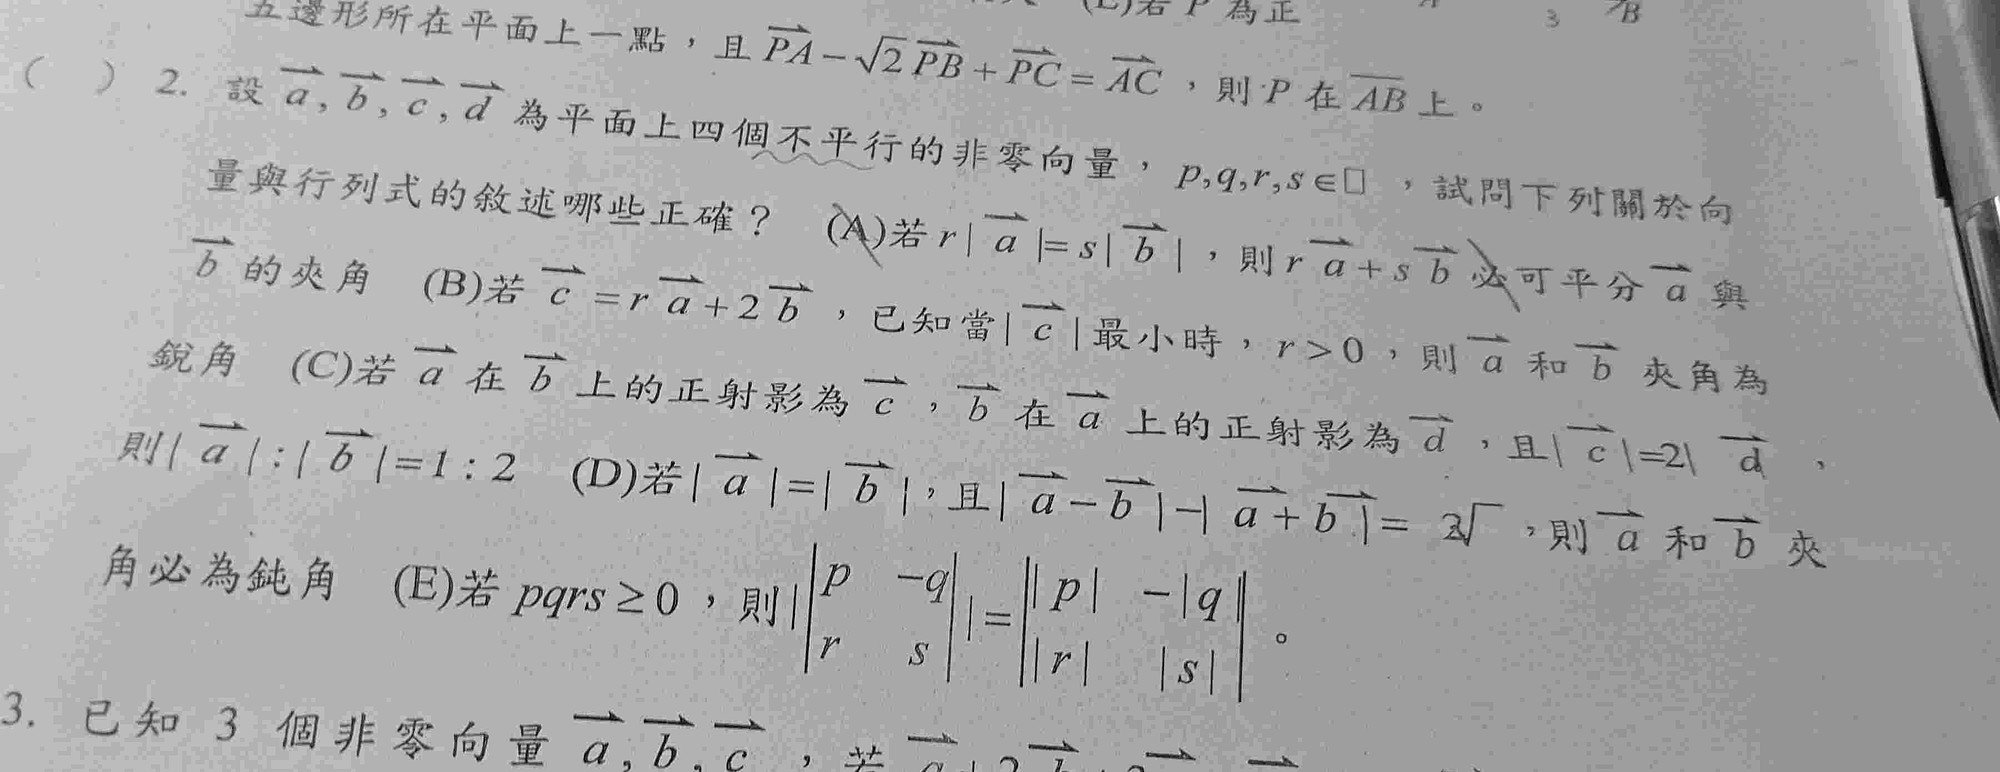 五邊形所在平面上一點，且 $\overrightarrow{PA}-\sqrt{2}\overrightarrow{PB}+\overrightarrow{PC}=\overrightarrow{AC}$，則 P 在 $\overline{AB}$ 上。
(  ) 2. 設 $\overrightarrow{a},\overrightarrow{b},\overrightarrow{c},\overrightarrow{d}$ 為平面上四個不平行的非零向量，$p,q,r,s\in$□，試問下列關於向
量與行列式的敘述哪些正確？ (A)若 $r|\overrightarrow{a}|=s|\overrightarrow{b}|$，則 $r\overrightarrow{a}+s\overrightarrow{b}$ 必可平分 $\overrightarrow{a}$ 與
$\overrightarrow{b}$ 的夾角 (B)若 $\overrightarrow{c}=r\overrightarrow{a}+2\overrightarrow{b}$，已知當$|\overrightarrow{c}|$最小時，$r>0$，則 $\overrightarrow{a}$ 和 $\overrightarrow{b}$ 夾角為
銳角 (C)若 $\overrightarrow{a}$ 在 $\overrightarrow{b}$ 上的正射影為 $\overrightarrow{c}$，$\overrightarrow{b}$ 在 $\overrightarrow{a}$ 上的正射影為 $\overrightarrow{d}$，且$|\overrightarrow{c}|=2|\overrightarrow{d}$，
則$|\overrightarrow{a}|:|\overrightarrow{b}|=1:2$ (D)若$|\overrightarrow{a}|=|\overrightarrow{b}|$，且$|\overrightarrow{a}-\overrightarrow{b}|-|\overrightarrow{a}+\overrightarrow{b}|=$ 2√，則 $\overrightarrow{a}$ 和 $\overrightarrow{b}$ 夾
角必為鈍角 (E)若 $pqrs\geq 0$，則$|\begin{vmatrix}p&-q\\r&s\end{vmatrix}|=\begin{vmatrix}|p|&-|q|\\|r|&|s|\end{vmatrix}$。
3. 已知 3 個非零向量 $\overrightarrow{a},\overrightarrow{b},\overrightarrow{c}$，若